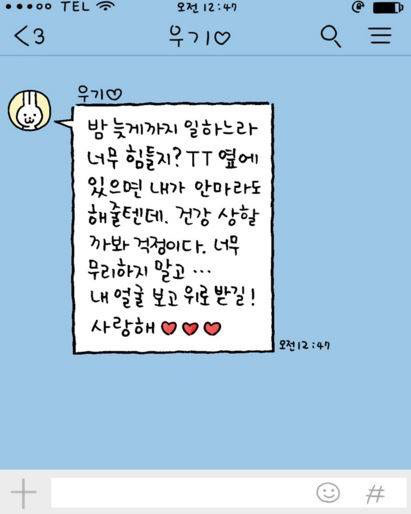 TEL 오전 12:47
<3 우기♡
우기♡
밤 늦게까지 일하느라
너무 힘들지? TT 옆에
있으면 내가 안마라도
해줄텐데. 건강 상할
까봐 걱정이다. 너무
무리하지 말고 ...
내 얼굴 보고 위로 받길!
사랑해 ♥♥♥
오전 12:47
+ #